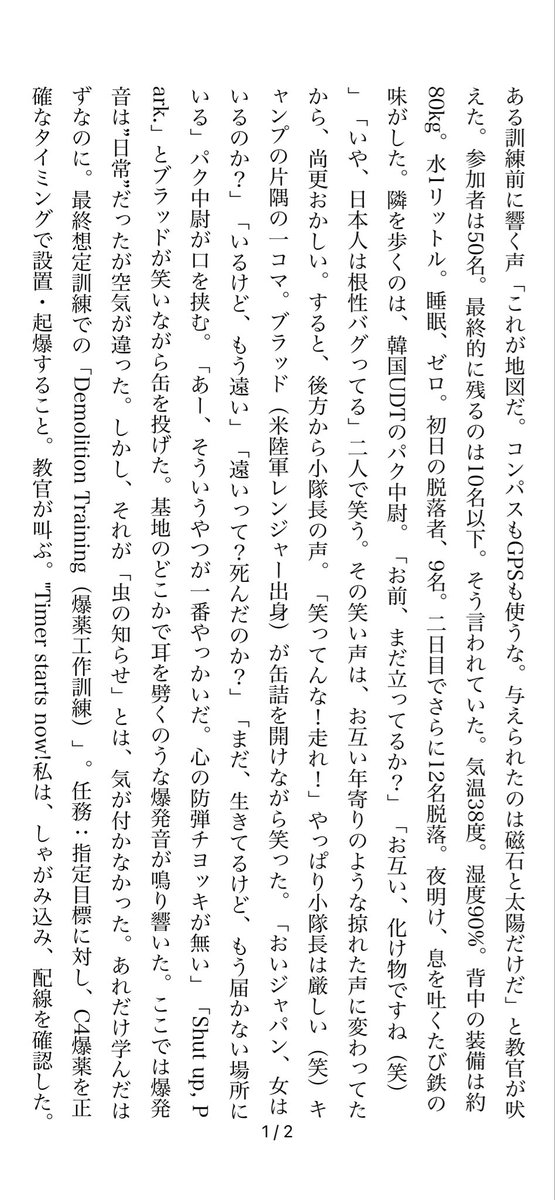 ある訓練前に響く声「これが地図だ。コンパスもGPSも使うな。与えられたのは磁石と太陽だけだ」と教官が吠
えた。参加者は50名。最終的に残るのは10名以下。そう言われていた。気温38度。湿度90%。背中の装備は約
80kg。水1リットル。睡眠、ゼロ。初日の脱落者、9名。二日目でさらに12名脱落。夜明け、息を吐くたび鉄の
味がした。隣を歩くのは、韓国UDTのパク中尉。「お前、まだ立ってるか?」「お互い、化け物ですね(笑)
」「いや、日本人は根性バグってる」二人で笑う。その笑い声は、お互い年寄りのような掠れた声に変わってた
から、尚更おかしい。すると、後方から小隊長の声。「笑ってんな!走れ!」やっぱり小隊長は厳しい(笑)キ
ャンプの片隅の一コマ。ブラッド(米陸軍レンジャー出身)が缶詰を開けながら笑った。「おいジャパン、女は
いるのか?」「いるけど、もう遠い」「遠いって?死んだのか?」「まだ、生きてるけど、もう届かない場所に
いる」パク中尉が口を挟む。「あー、そういうやつが一番やっかいだ。心の防弾チョッキが無い」「Shut up, P
ark.」とブラッドが笑いながら缶を投げた。基地のどこかで耳を劈くのうな爆発音が鳴り響いた。ここでは爆発
音は”日常”だったが空気が違った。しかし、それが「虫の知らせ」とは、気が付かなかった。あれだけ学んだは
ずなのに。最終想定訓練での「Demolition Training(爆薬工作訓練)」。任務:指定目標に対し、C4爆薬を正
確なタイミングで設置・起爆すること。教官が叫ぶ。"Timer starts now!私は、しゃがみ込み、配線を確認した。
1/2